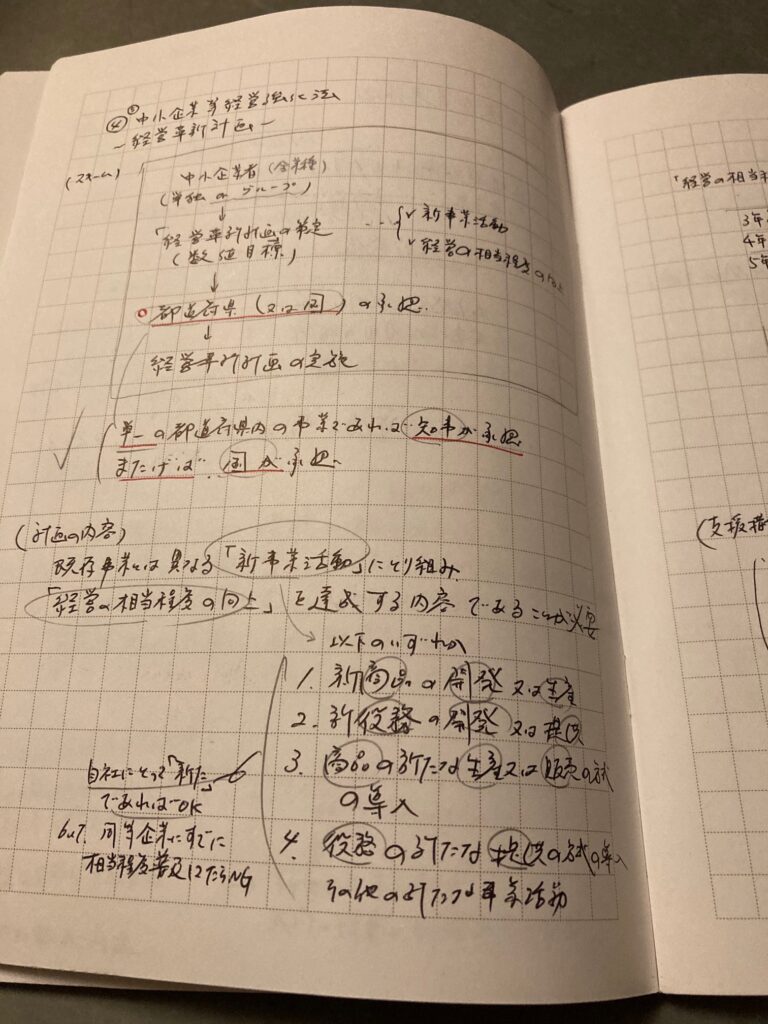 ④ 中小企業等経営強化法
ー経営革新計画ー
(スキーム)
中小企業者(全業種)
(単独 or グループ)
↓
「経営革新計画の策定
(数値目標)
{ ✓ 新事業活動
✓ 経営の相当程度の向上
↓
都道府県(又は国)の承認.
↓
経営革新計画の実施
単一の都道府県内の事業であれば 知事が承認
またげば 国が承認.
(計画の内容)
既存事業とは異なる「新事業活動」にとり組み.
「経営の相当程度の向上」を達成する内容であることが必要
以下のいずれか
1. 新商品の開発又は生産
2. 新役務の開発又は提供
3. 商品の新たな生産又は販売の方式
の導入
4. 役務の新たな提供の方式の導入
その他の新たな事業活動
自社にとって「新た」
であればOK
but 同等企業にすでに
相当程度普及してたらNG
「経営の相当程
3年
4年
5年
(支援措